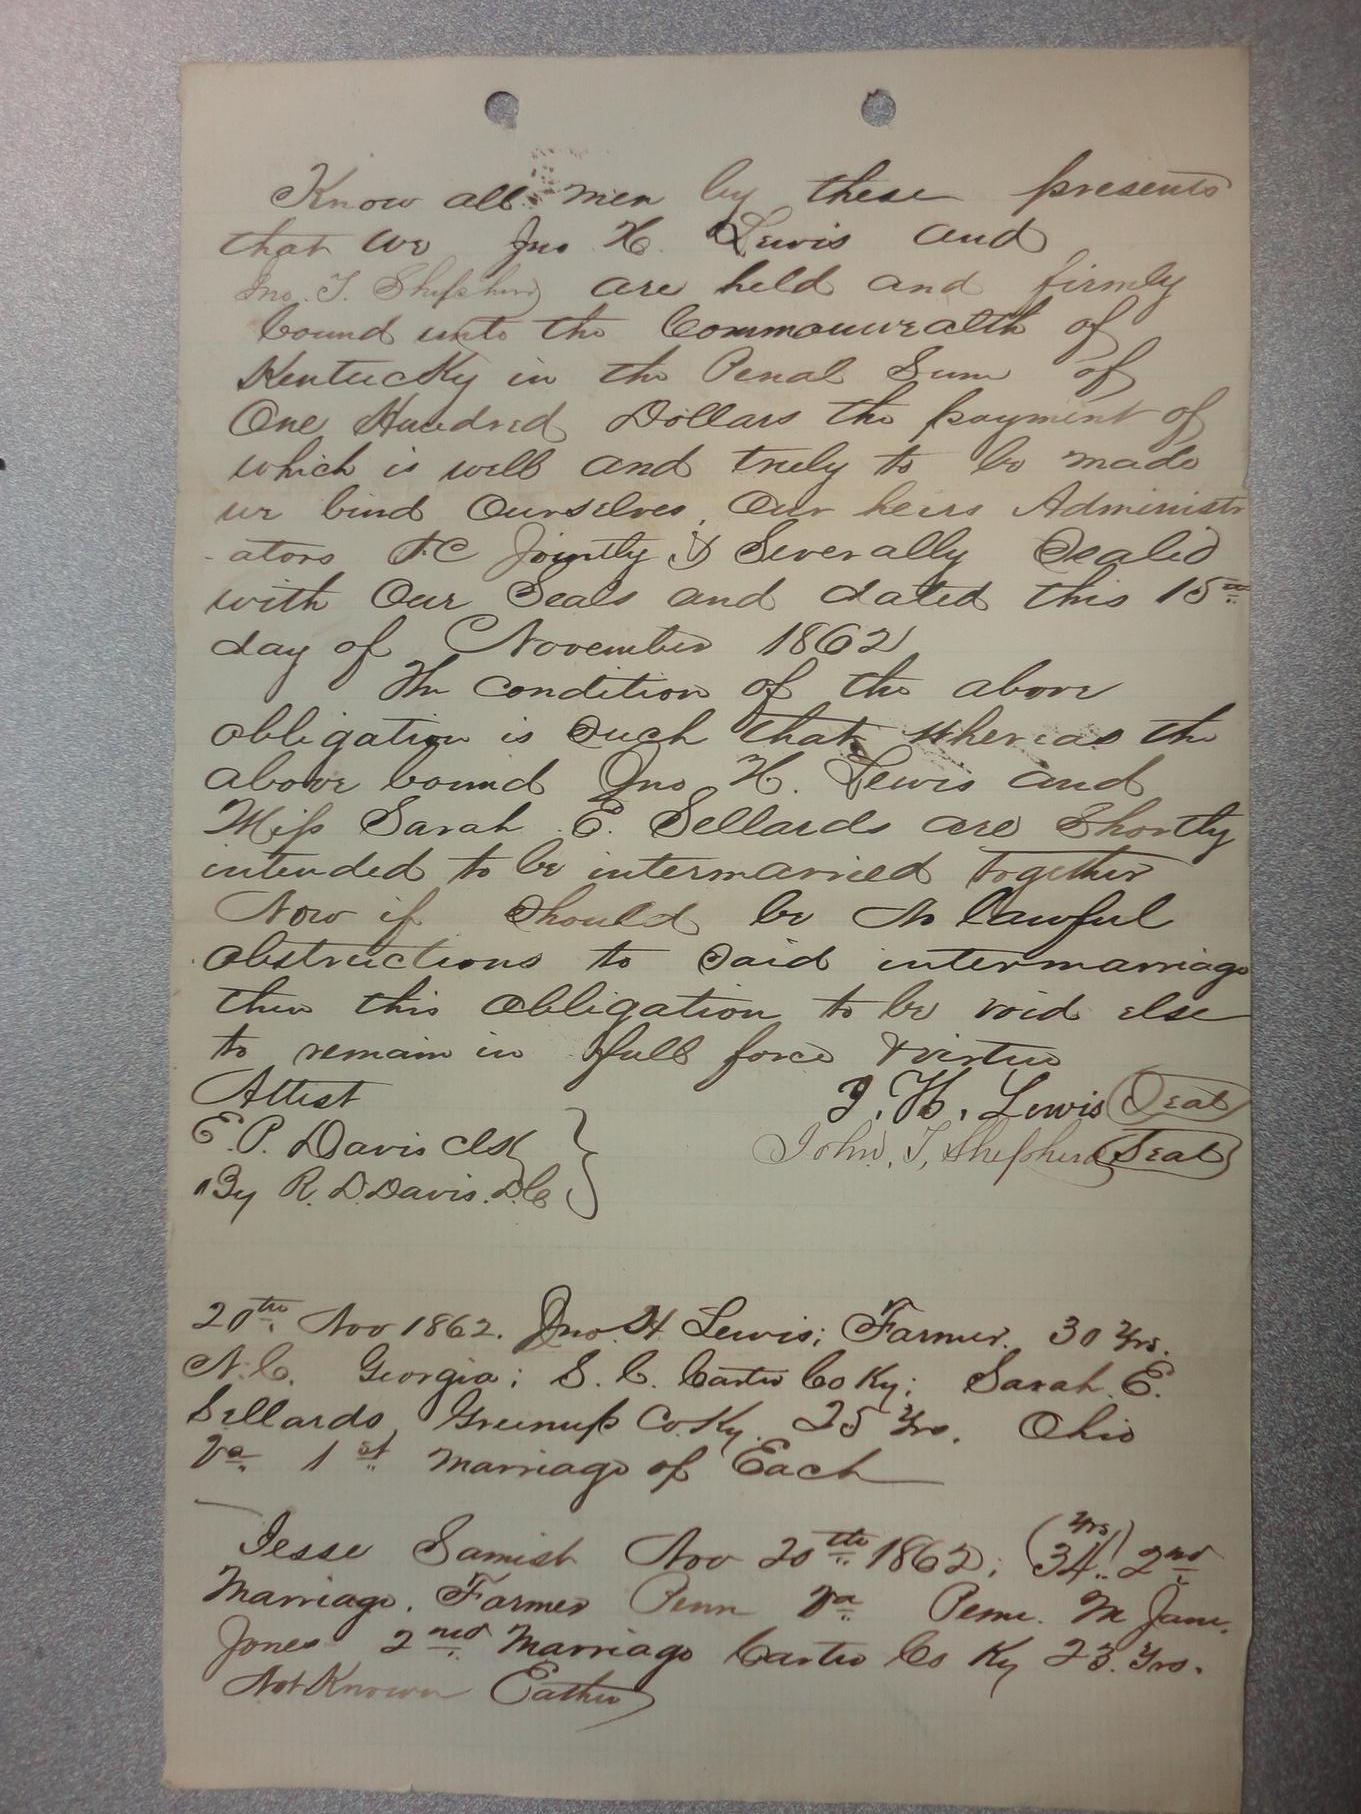 Know all men by these presents
that we Jno H. Lewis and
Jno. T. Shepherd are held and firmly
bound unto the Commonwealth of
Kentucky in the Penal Sum of
One Hundred Dollars the payment of
which is well and truly to be made
we bind Ourselves, Our heirs Administr
-ators &C Jointly & Severally Sealed
with Our Seals and dated this 15th
day of November 1862
The condition of the above
obligation is Such that whereas the
above bound Jno H. Lewis and
Miss Sarah E. Sellards are Shortly
intended to be intermarried together
Now if Should be no lawful
obstructions to Said intermarriage
then this obligation to be void else
to remain in full force & virtue
Attest J. H. Lewis Seal
E. P. Davis Clk John. T. Shepherd Seal
By R. D. Davis. D.C
20th Nov 1862. Jno. H Lewis; Farmer. 30 Yrs.
N.C. Georgia; S. C. Carter Co Ky; Sarah E.
Sellards, Greenup Co. Ky. 25 Yrs. Ohio
Va 1st Marriage of Each
Jesse Nov 20th 1862; (34 yrs) 2nd
Marriage. Farmer Penn Va Penn. M Jane
Jones 2nd Marriage Carter Co Ky 23. Yrs.
Not Known Eather